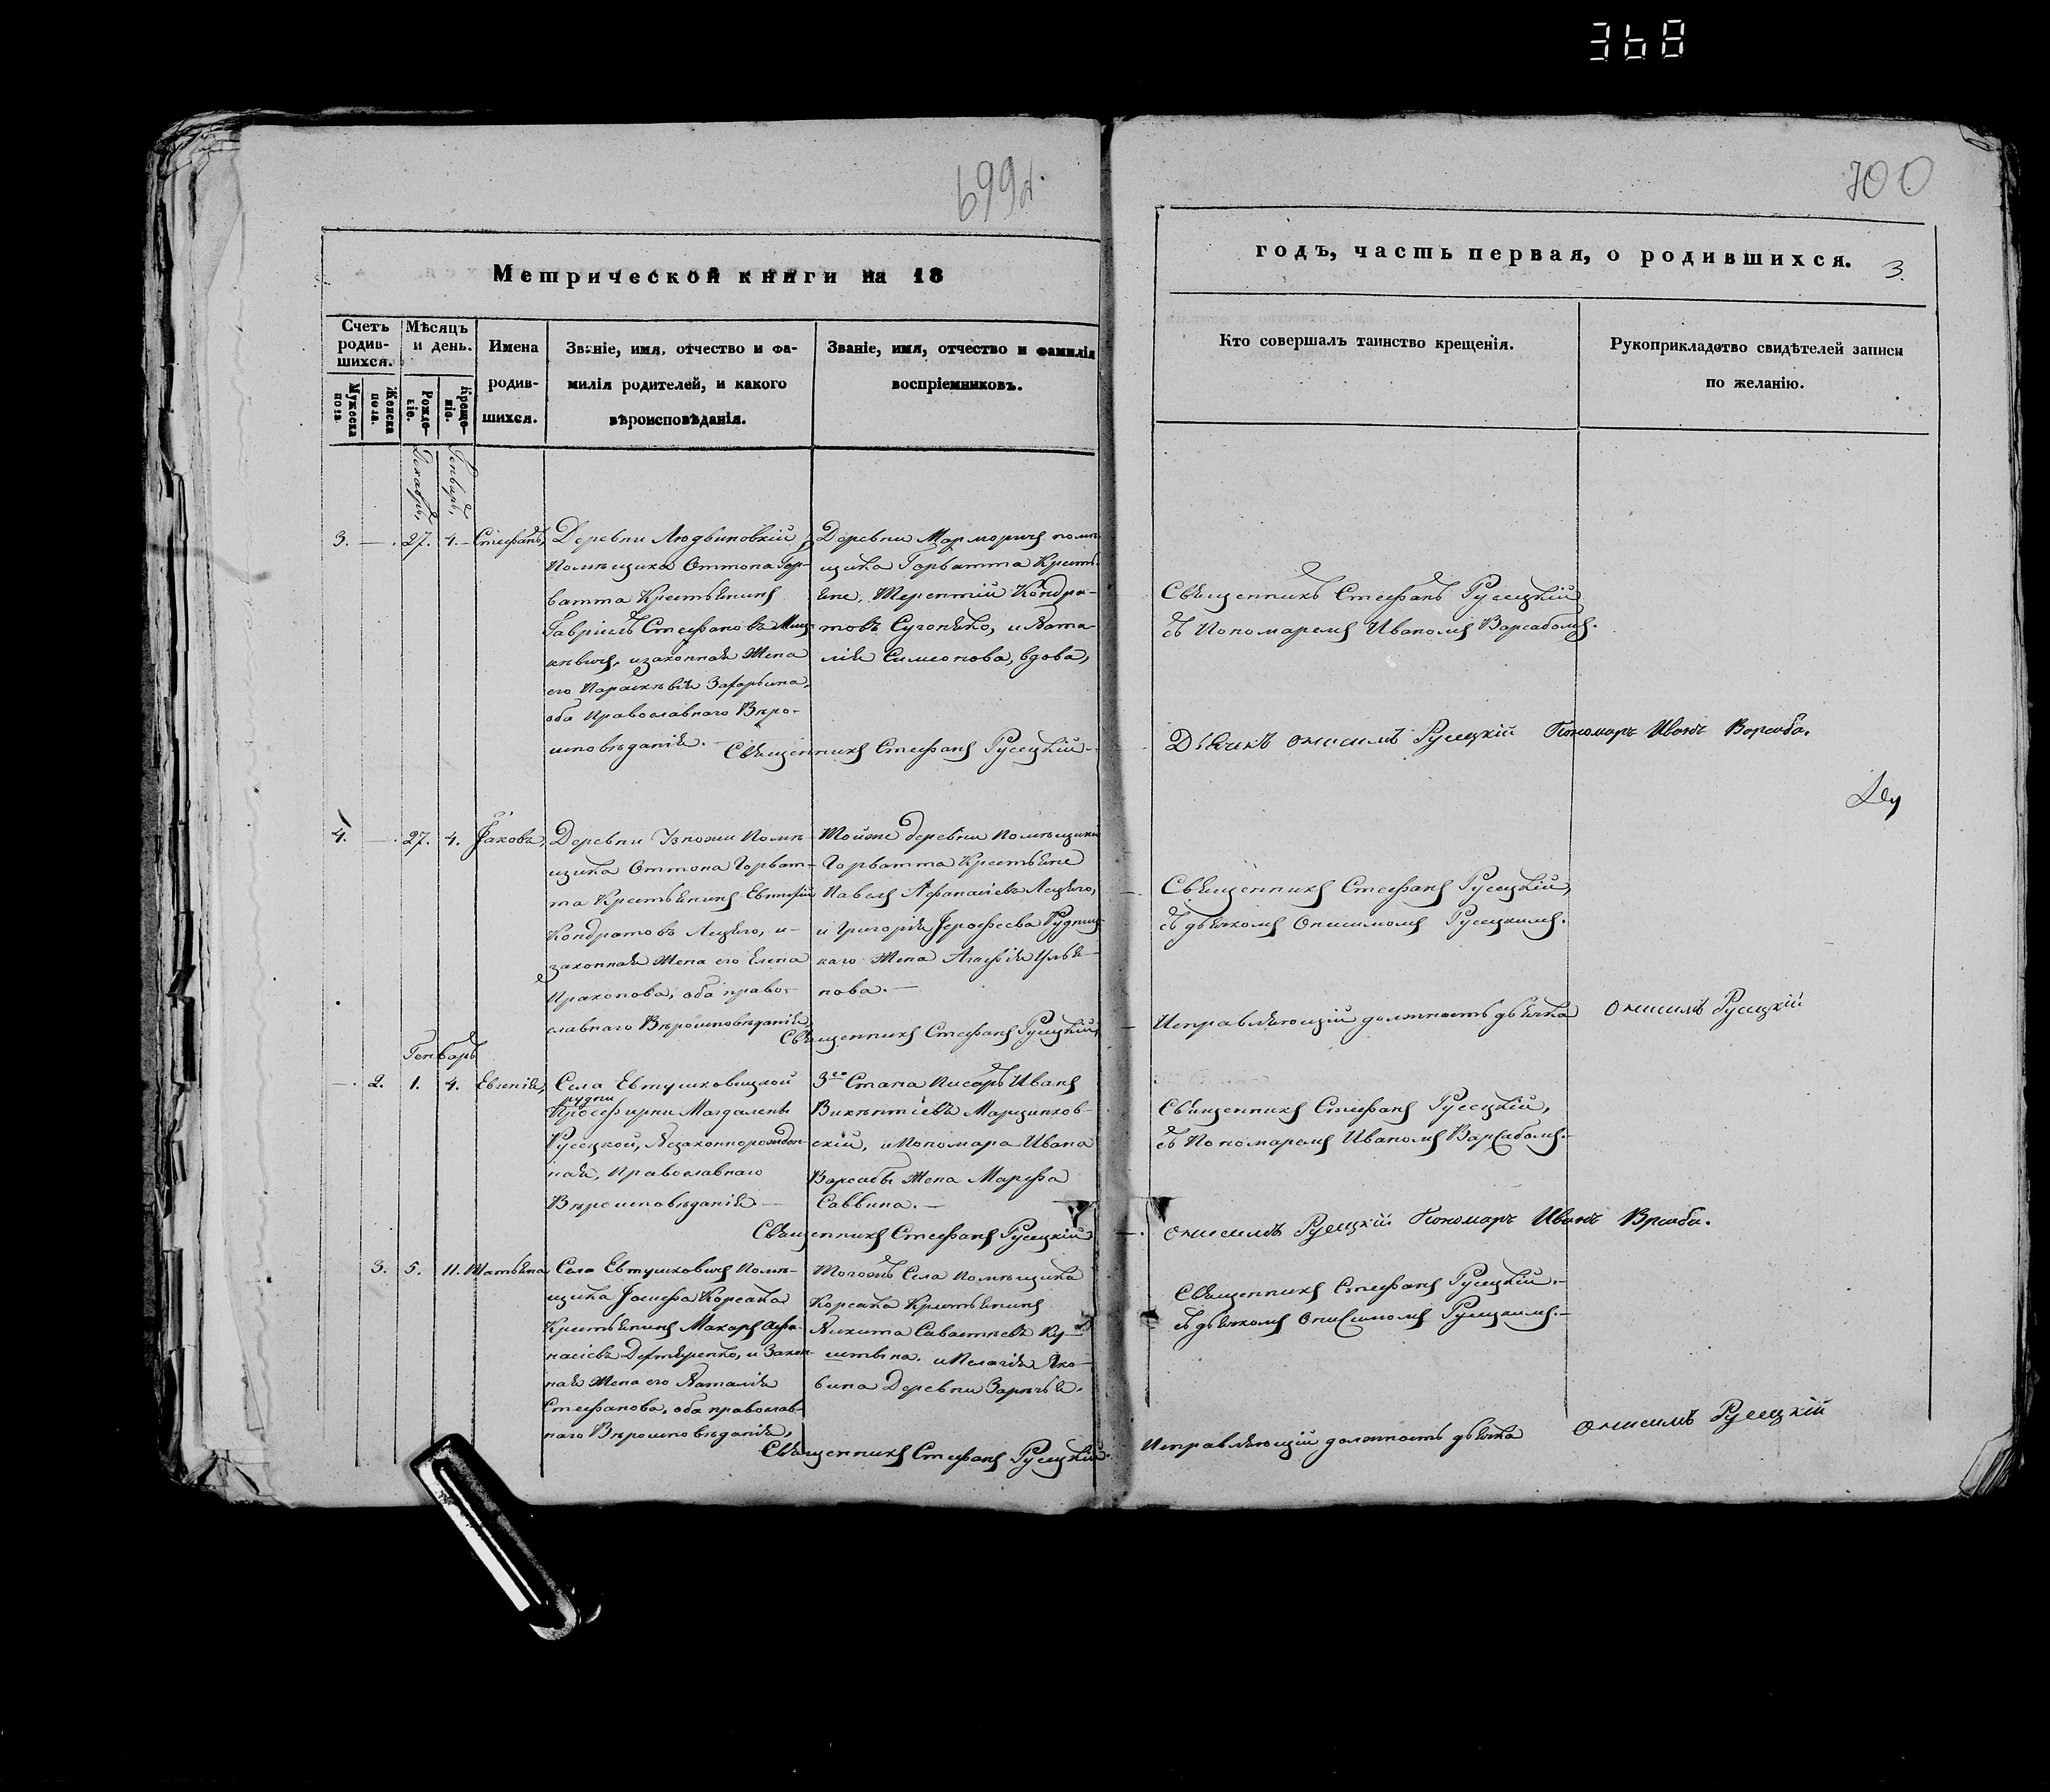 368
699
700
Метрической книги на 18
годъ, часть первая, о родившихся.
3.
Счетъ родив-шихся.
Мѣсяцъ и день.
Мужеска пола
Женска пола.
Рожде-ніе.
Креще-ніе.
Имена
родив-
шихся.
Званіе, имя, отчество и фа-
милія родителей, и какого
вѣроисповѣданія.
Званіе, имя, отчество и фамилія
воспріемниковъ.
Кто совершалъ таинство крещенія.
Рукоприкладство свидѣтелей записи
по желанію.
Декабрь,
Генварь,
3. — 27. 4. Стефанъ,
Деревни Людвиновкій
Помѣщика Оттона Гор-
ватта Крестьянинъ
Гавріилъ Стефановъ
изаконная жена
его Параскѣвія Захарьина,
оба Православнаго Вѣро-
исповѣданія.
Деревни Марморичъ помѣ
щика Горватта Кресть
яне, Терентій Кондра-
товъ Сугоняко, и Ната-
лія Симеонова, вдова,
Священникъ Стефанъ Русецкій
Священникъ Стефанъ Русецкій
съ Пономаремъ Иваномъ Варсабомъ.
Дьячикъ Онисимъ Русецкій Пономарь Иванъ Варсаба.
4. — 27. 4. Іаковъ,
Деревни Узножи Помѣ-
щика Оттона Горват-
та Крестьянинъ Евтихій
Кондратовъ Лецко, и
законная жена его Елена
Прахопова, оба право-
славнаго Вѣроисповѣданія,
Тойже деревни Помѣщика
Горватта Крестьяне
Павелъ Афанасіевъ
и Григорія Іерофеева Рудниц
каго жена Агафія Улья-
нова. —
Священникъ Стефанъ Русецкій,
Священникъ Стефанъ Русецкій,
съ дьячкомъ Онисимомъ Русецкимъ.
Исправляющій должность дьячка Онисимъ Русецкій
Генварь
— 2. 1. 4. Евгенія,
Села Евтушковицкой
рудни
Просфирни Магдалены
Русецкой, Незаконнорожден-
ная, Православнаго
Вѣроисповѣданія —
3го Стана Писарь Иванъ
Викентіевъ Марцинков-
скій, и Пономара Ивана
Варсабы жена Марфа
Саввина. —
Священникъ Стефанъ Русецкій
Священникъ Стефанъ Русецкій,
съ Пономаремъ Иваномъ Варсабомъ. —
Онисимъ Русецкій Пономарь Иванъ Врсаба.
3. 5. 11. Татьяна
Села Евтушковичъ Помѣ-
щика Іосифа Корсака
Крестьянинъ Макаръ Афа-
насіевъ и Закон-
ная жена его Наталія
Стефанова, оба православ-
наго Вѣроисповѣданія,
Тогожъ Села Помѣщика
Корсака Крестьянинъ
Никита Савастіевъ
и Пелагія Яко-
вина Деревни Зарѣчья.
Священникъ Стефанъ Русецкій.
Священникъ Стефанъ Русецкій. —
съ дьячкомъ Онисимомъ Русецкимъ. —
Исправляющій должность дьячка Онисимъ Русецкій